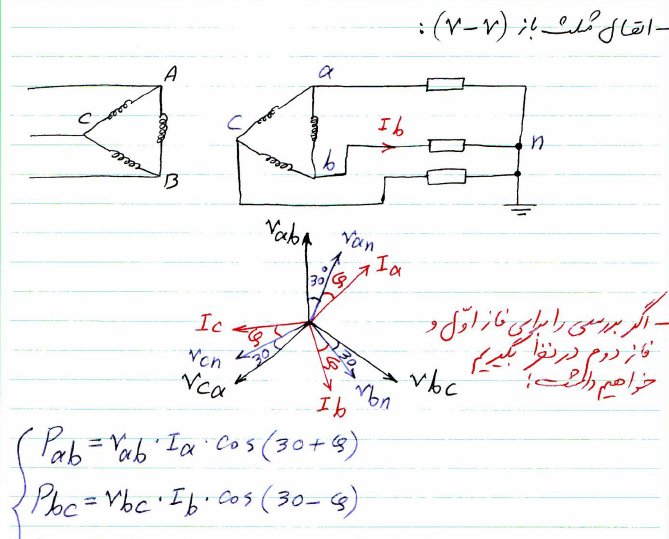 - اتصال مثلث باز (V-V) :
A
a
C
c
Ib
n
b
B
Vab
Van
30°
φ
Ia
Ic
φ
Vcn
30
Vca
30
φ
Vbn
Ib
Vbc
- اگر بررسی را برای فاز اوّل و
فاز دوم در نظر بگیریم
خواهیم داشت:
Pab = Vab · Ia · cos(30+φ)
Pbc = Vbc · Ib · cos(30-φ)